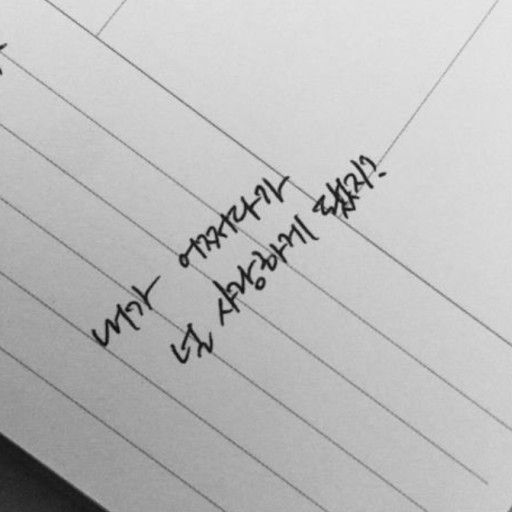 내가 어쩌다가
널 사랑하게 됐지?